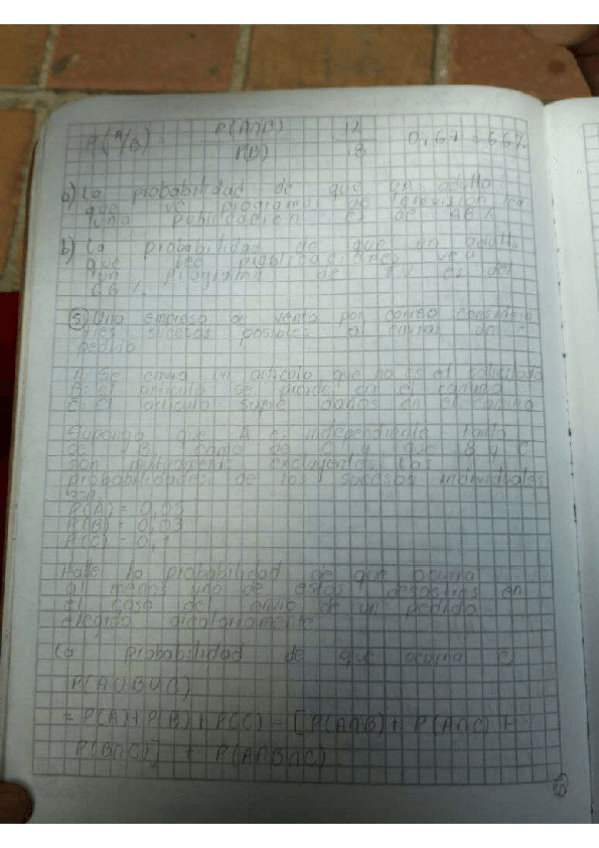 P(A/B) = P(A∩B) / P(B) 12 / 18 0,67 = 66%
a) La probabilidad de que un adulto
que ve programas de television lea
una publicacion es de
b) La probabilidad de que un adulto
que lee publicaciones vea
un programa de TV es del
⑤ Una empresa de venta por correo considera
tres sucesos posibles al enviar un
pedido
A: Se envia un articulo que no es el solicitado
B: El articulo se pierde en el camino
C: El articulo sufre daños en el camino
Suponga que A es independiente tanto
de B como de C y que B y C
son mutuamente excluyentes las
probabilidades de los sucesos individuales
son
P(A) = 0,05
P(B) = 0,03
P(C) = 0,1
Halle la probabilidad de que ocurra
al menos uno de estos desastres en
el caso del envio de un pedido
elegido aleatoriamente
La probabilidad de que ocurra
P(A∪B∪C)
= P(A)+P(B)+P(C) - [P(A∩B)+ P(A∩C) +
P(B∩C)] + P(A∩B∩C)